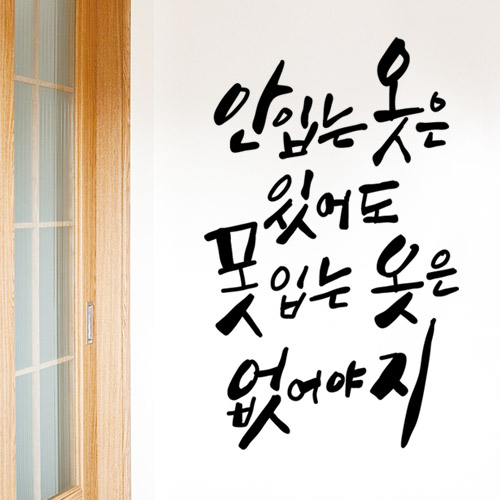 안입는 옷은
있어도
못입는 옷은
없어야지